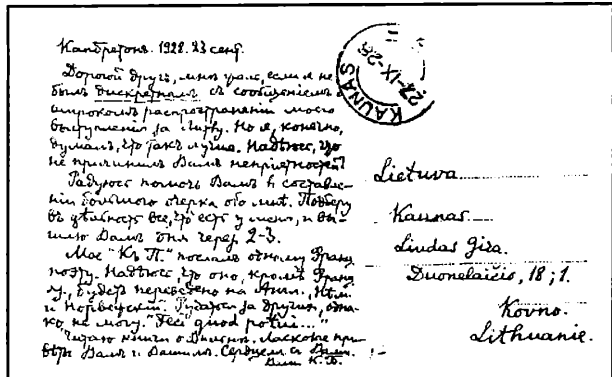 Капбретонъ. 1928. 23 сент.
Дорогой другъ, мнѣ жаль, если я не
былъ дискретнымъ съ сообщеніемъ о
широкомъ распространеніи моего
выступленія за Литву. Но я, конечно,
думалъ, что такъ лучше. Надѣюсь, что
не причинилъ Вамъ непріятностей?
Радуюсь помочь Вамъ въ составле-
ніи большого очерка обо мнѣ. Подберу
въ цѣльность все, что есть у меня, и вы-
шлю Вамъ дня черезъ 2-3.
Мое "Къ П." послалъ одному Франц.
поэту. Надѣюсь, что оно, кромѣ Франц.
яз., будетъ переведено на Англ., Нѣм.
и Норвежскій. Ручаться за другихъ, одна-
ко, не могу. "Feci quod potui..."
Читаю книги о Вильнѣ. Ласковые при-
вѣты Вамъ и Вашимъ. Сердцемъ съ Вами.
Вашъ К. Б.
KAUNAS
27-IX-28
Lietuva
Kaunas
Liudas Gira.
Duonelaičio, 18; 1.
Kovno.
Lithuanie.